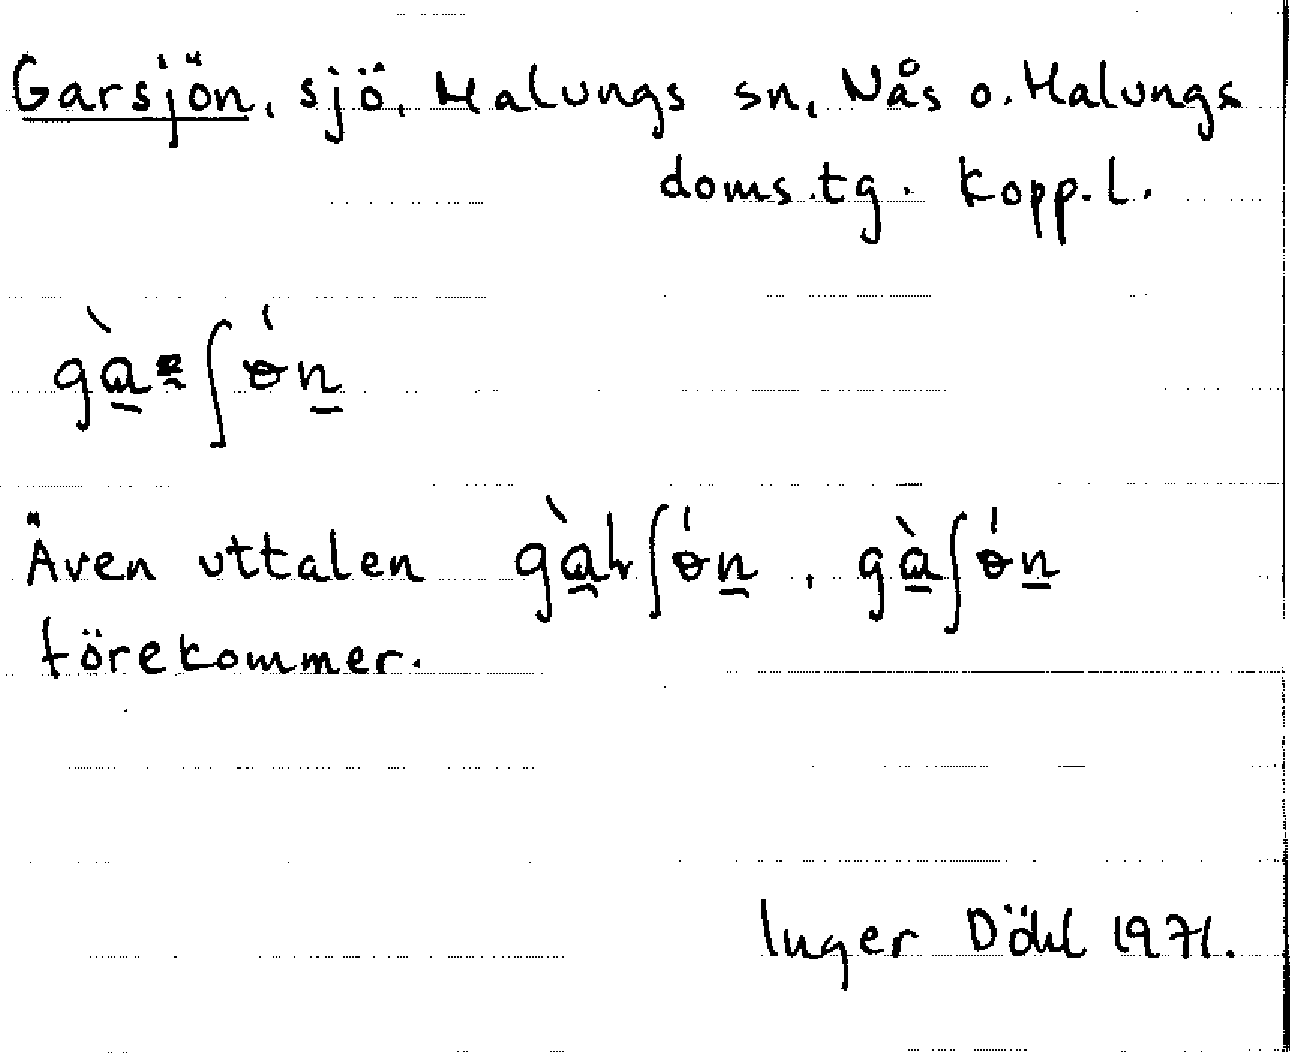 Garsjön, sjö, Malungs sn, Nås o. Malungs
doms.tg. Kopp.l.
Även uttalen gàrʃɵ́n, gàʃɵ́n
förekommer.
Inger Döhl 1971.